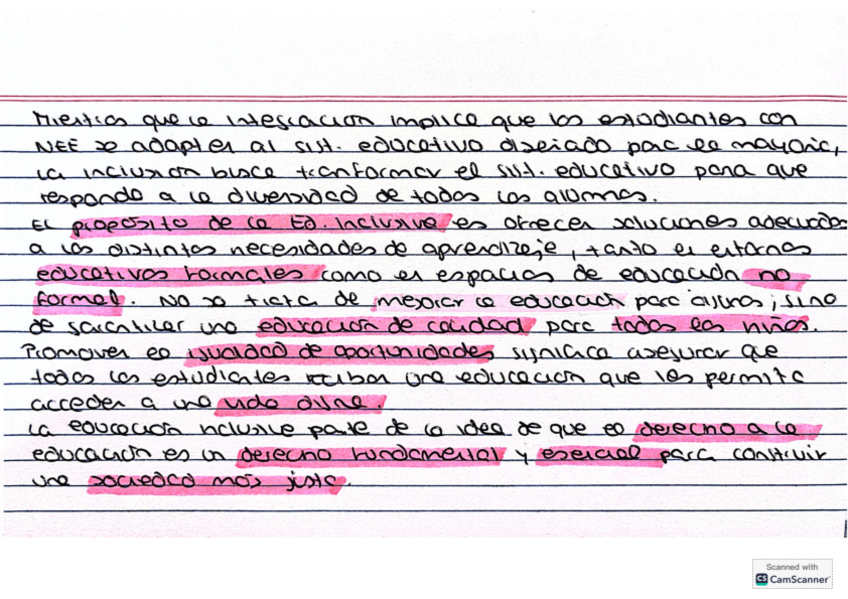 Mientras que la integración implica que los estudiantes con
NEE se adapten al sist. educativo diseñado para la mayoría,
la inclusión busca tranformar el sist. educativo para que
responda a la diversidad de todos los alumnos.
El propósito de la Ed. Inclusiva es ofrecer soluciones adecuadas
a las distintas necesidades de aprendizaje, tanto en entornos
educativos formales como en espacios de educación no
formal. No se trata de mejorar la educación para algunos, sino
de garantizar una educación de calidad para todos los niños.
Promover la igualdad de oportunidades significa asegurar que
todos los estudiantes reciban una educación que les permita
acceder a una vida digna.
La educación inclusiva parte de la idea de que el derecho a la
educación es un derecho fundamental y esencial para construir
una sociedad más justa.
Scanned with
CS CamScanner